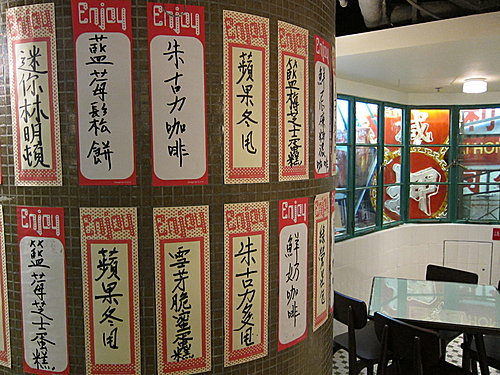 Enjoy
迷你林明頓
Enjoy
藍莓鬆餅
Enjoy
朱古力咖啡
Enjoy
蘋果冬甩
Enjoy
籃莓芝士蛋糕
Enjoy
Enjoy
籃莓芝士蛋糕
Enjoy
蘋果冬甩
Enjoy
雪芽脆蜜蛋糕
Enjoy
朱古力冬甩
Enjoy
鮮奶咖啡
Enjoy
押